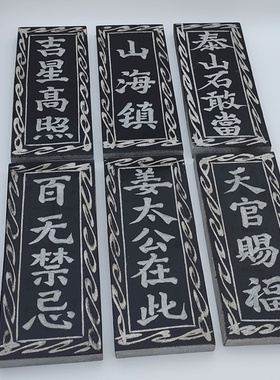 吉星高照
山海镇
泰山石敢當
百无禁忌
姜太公在此
天官赐福